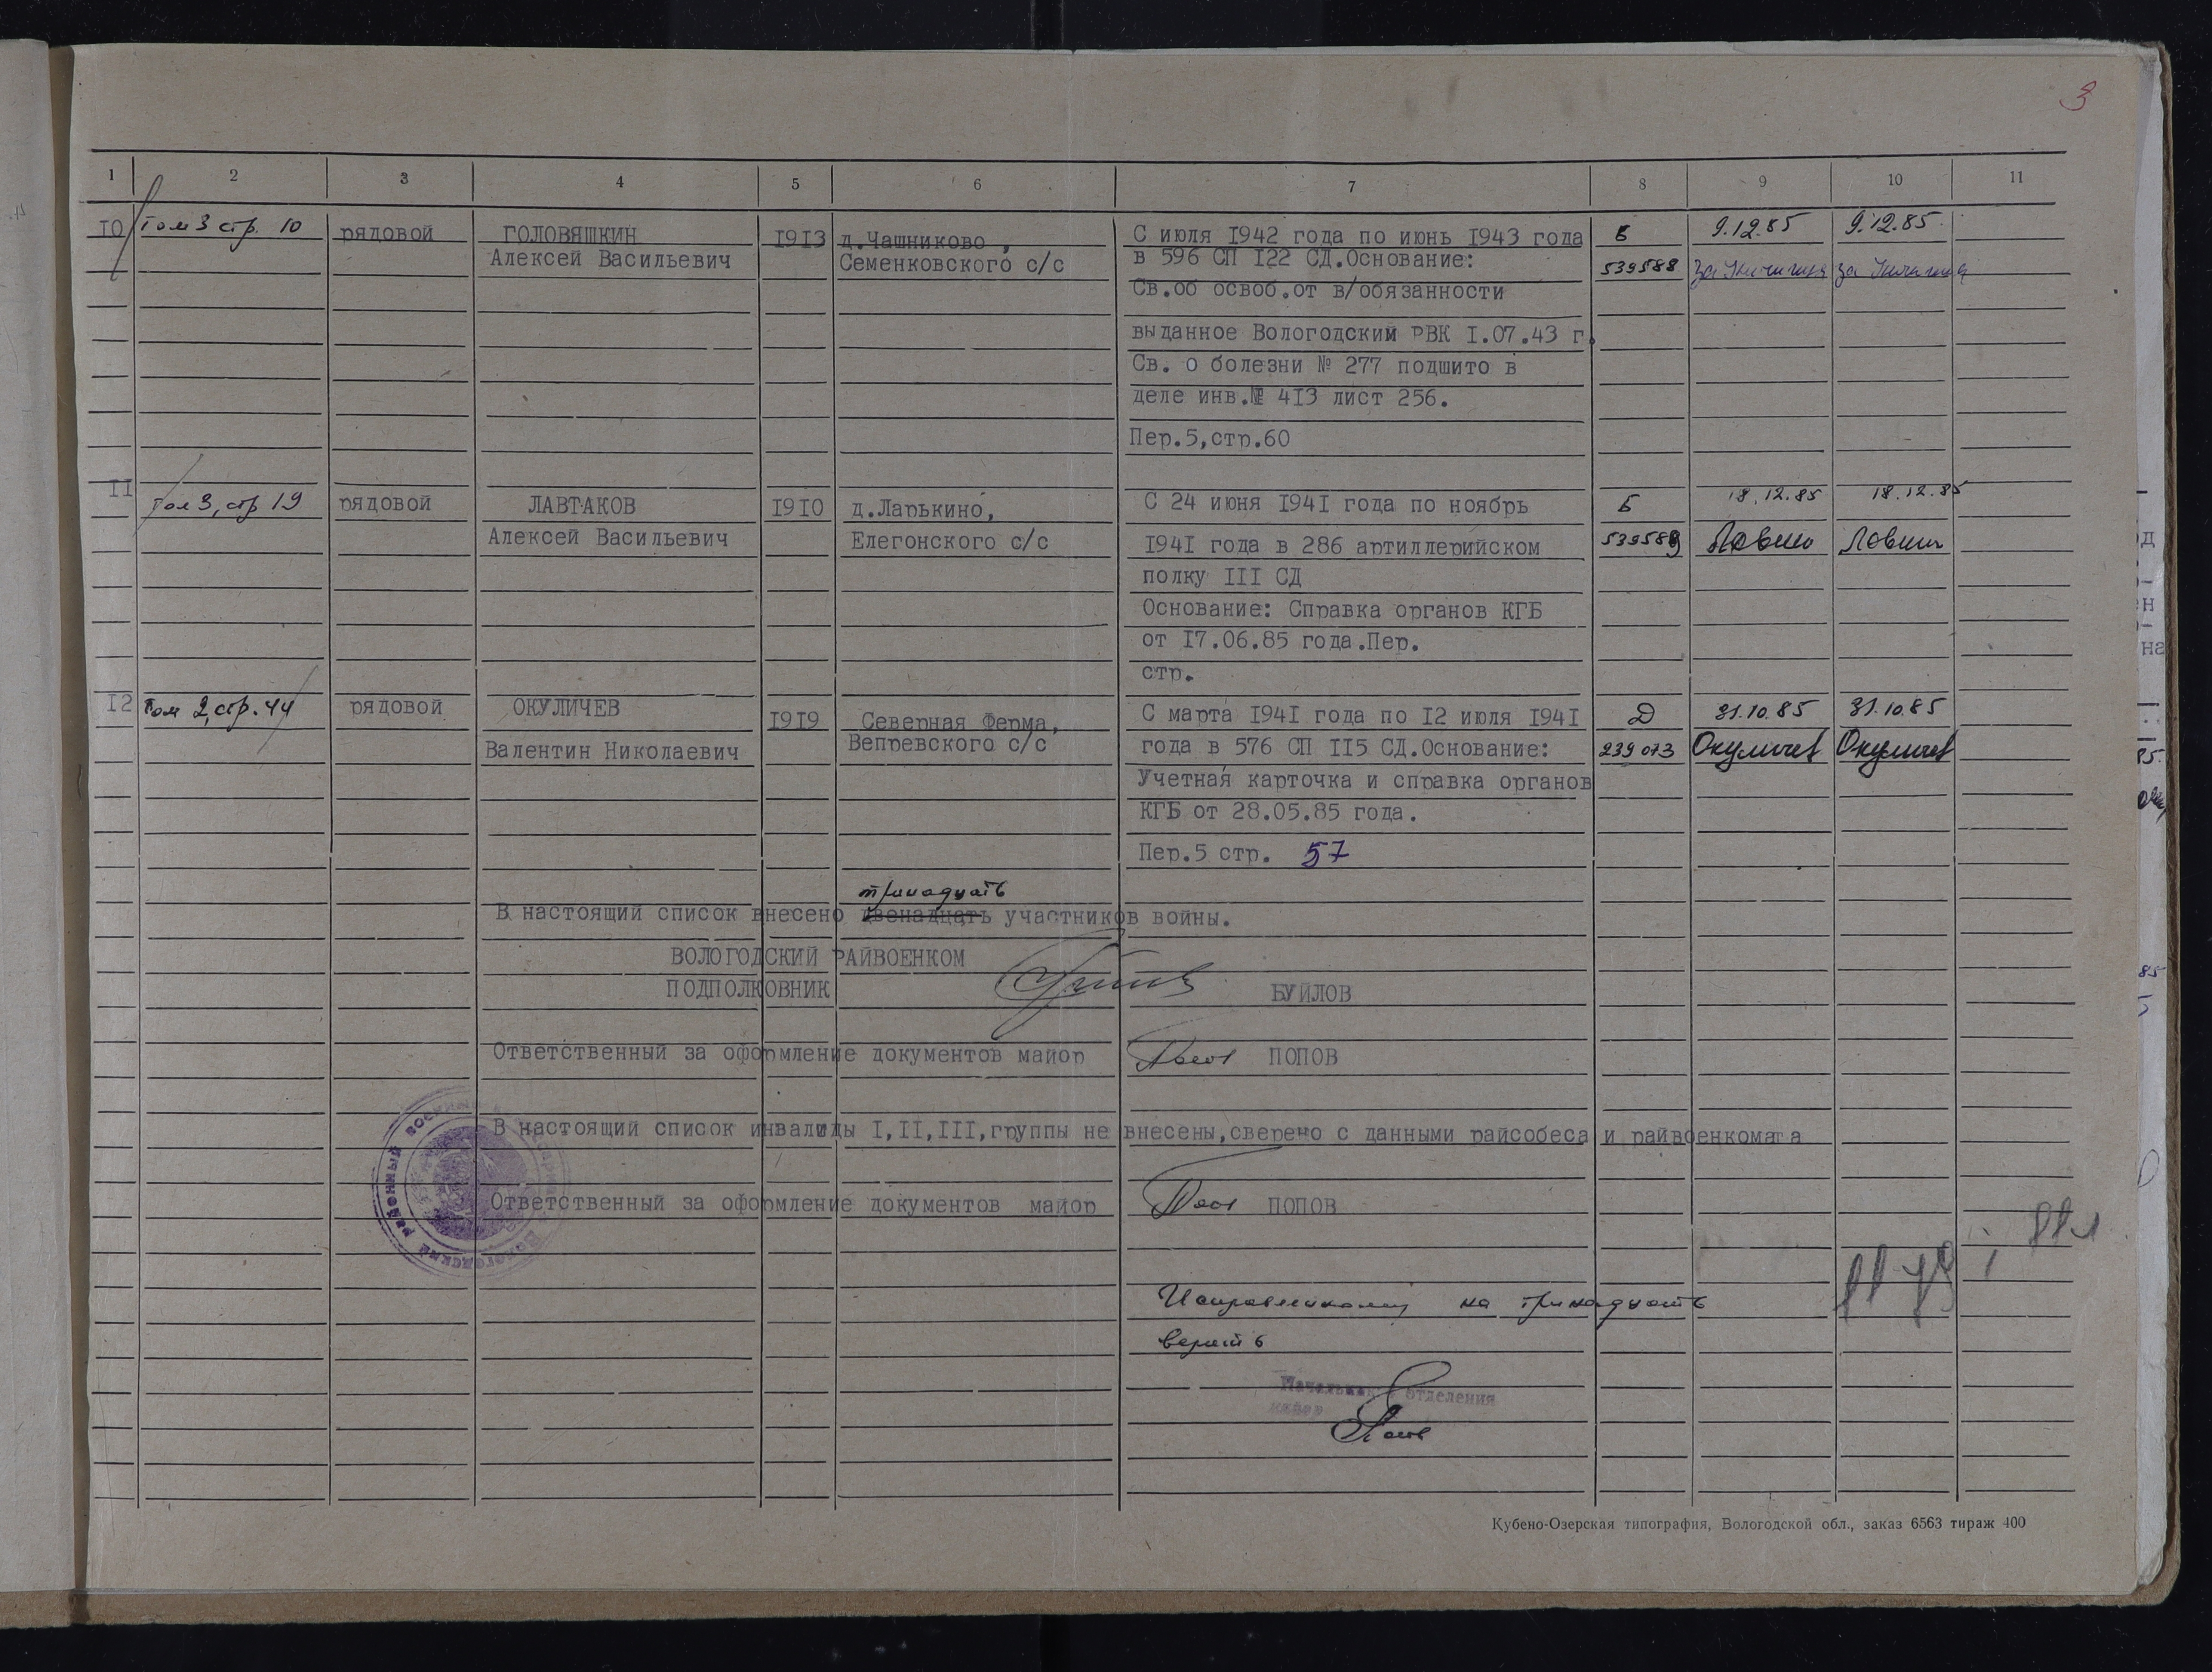 3
1 2 3 4 5 6 7 8 9 10 11
I0 Том 3 стр. 10 рядовой ГОЛОВЯШКИН 1913 д.Чашниково, С июля 1942 года по июнь 1943 года Б 9.12.85 9.12.85
Алексей Васильевич Семенковского с/с в 596 СП I22 СД.Основание: 539588 за за
Св.об освоб.от в/обязанности
выданное Вологодским РВК I.07.43 г.
Св. о болезни № 277 подшито в
деле инв.№ 4I3 лист 256.
Пер.5,стр.60
II Том 3, стр 19 рядовой ЛАВТАКОВ I9I0 д.Ларькино, С 24 июня I94I года по ноябрь Б 18.12.85 18.12.85
Алексей Васильевич Елегонского с/с I94I года в 286 артиллерийском 539589
полку III СД
Основание: Справка органов КГБ
от I7.06.85 года.Пер.
стр.
I2 Том 2, стр. 44 рядовой ОКУЛИЧЕВ I9I9 Северная Ферма, С марта I94I года по I2 июля I94I Д 31.10.85 31.10.85
Валентин Николаевич Вепревского с/с года в 576 СП II5 СД.Основание: 239073 Окуличев Окуличев
Учетная карточка и справка органов
КГБ от 28.05.85 года.
Пер.5 стр. 57
тринадцать
В настоящий список внесено двенадцать участников войны.
ВОЛОГОДСКИЙ РАЙВОЕНКОМ
ПОДПОЛКОВНИК БУЙЛОВ
Ответственный за оформление документов майор ПОПОВ
В настоящий список инвалиды I,II,III,группы не внесены,сверено с данными райсобеса и райвоенкомата
Ответственный за оформление документов майор ПОПОВ
Вологодский районный военный
Исправленному на тринадцать
верить
Начальник отделения
майор
Кубено-Озерская типография, Вологодской обл., заказ 6563 тираж 400